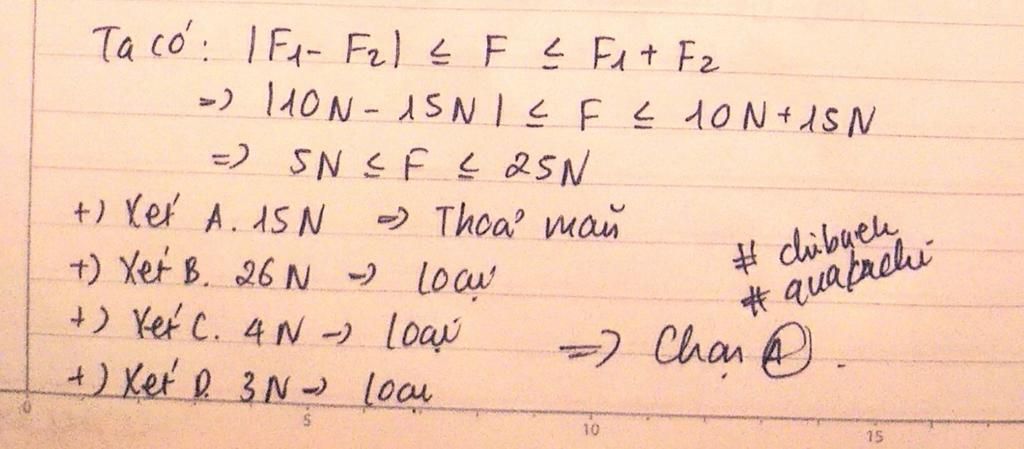 Ta có: |F1 - F2| ≤ F ≤ F1 + F2
=> |10N - 15N| ≤ F ≤ 10N + 15N
=> 5N ≤ F ≤ 25N
+) Xét A. 15N => Thoả mãn
+) Xét B. 26N -> loại
+) Xét C. 4N -> loại
+) Xét D. 3N -> loại
#
#
=> Chọn A.
0 5 10 15